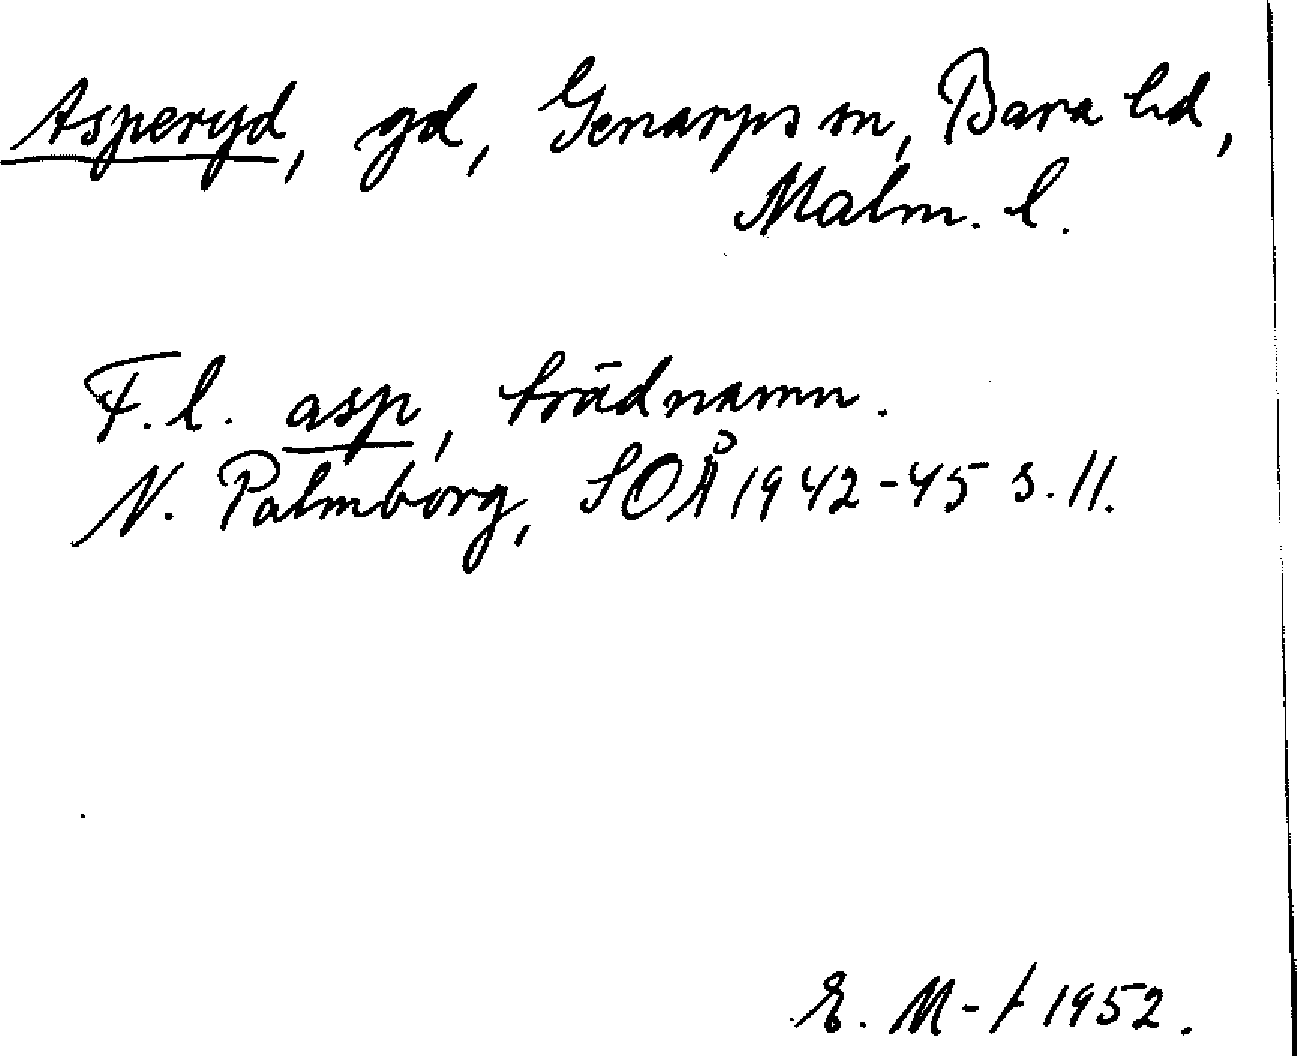 Asperyd, gd, Genarps sn, Bara hd,
Malm. l.
F.l. asp, trädnamn.
N. Palmborg, SOÅ 1942-45 s. 11.
E. M-t 1952.